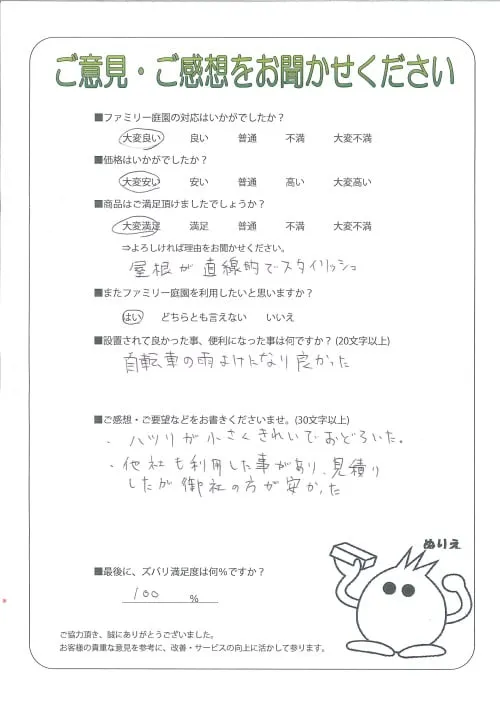 ご意見・ご感想をお聞かせください
■ファミリー庭園の対応はいかがでしたか？
大変良い 良い 普通 不満 大変不満
■価格はいかがでしたか？
大変安い 安い 普通 高い 大変高い
■商品はご満足頂けましたでしょうか？
大変満足 満足 普通 不満 大変不満
⇒よろしければ理由をお聞かせください。
屋根が直線的でスタイリッシュ
■またファミリー庭園を利用したいと思いますか？
はい どちらとも言えない いいえ
■設置されて良かった事、便利になった事は何ですか？(20文字以上)
自転車の雨よけになり良かった
■ご感想・ご要望などをお書きくださいませ。(30文字以上)
・ハツリが小さくきれいでおどろいた。
・他社も利用した事があり、見積り
したが御社の方が安かった
ぬりえ
■最後に、ズバリ満足度は何%ですか？
100 %
ご協力頂き、誠にありがとうございました。
お客様の貴重な意見を参考に、改善・サービスの向上に活かして参ります。